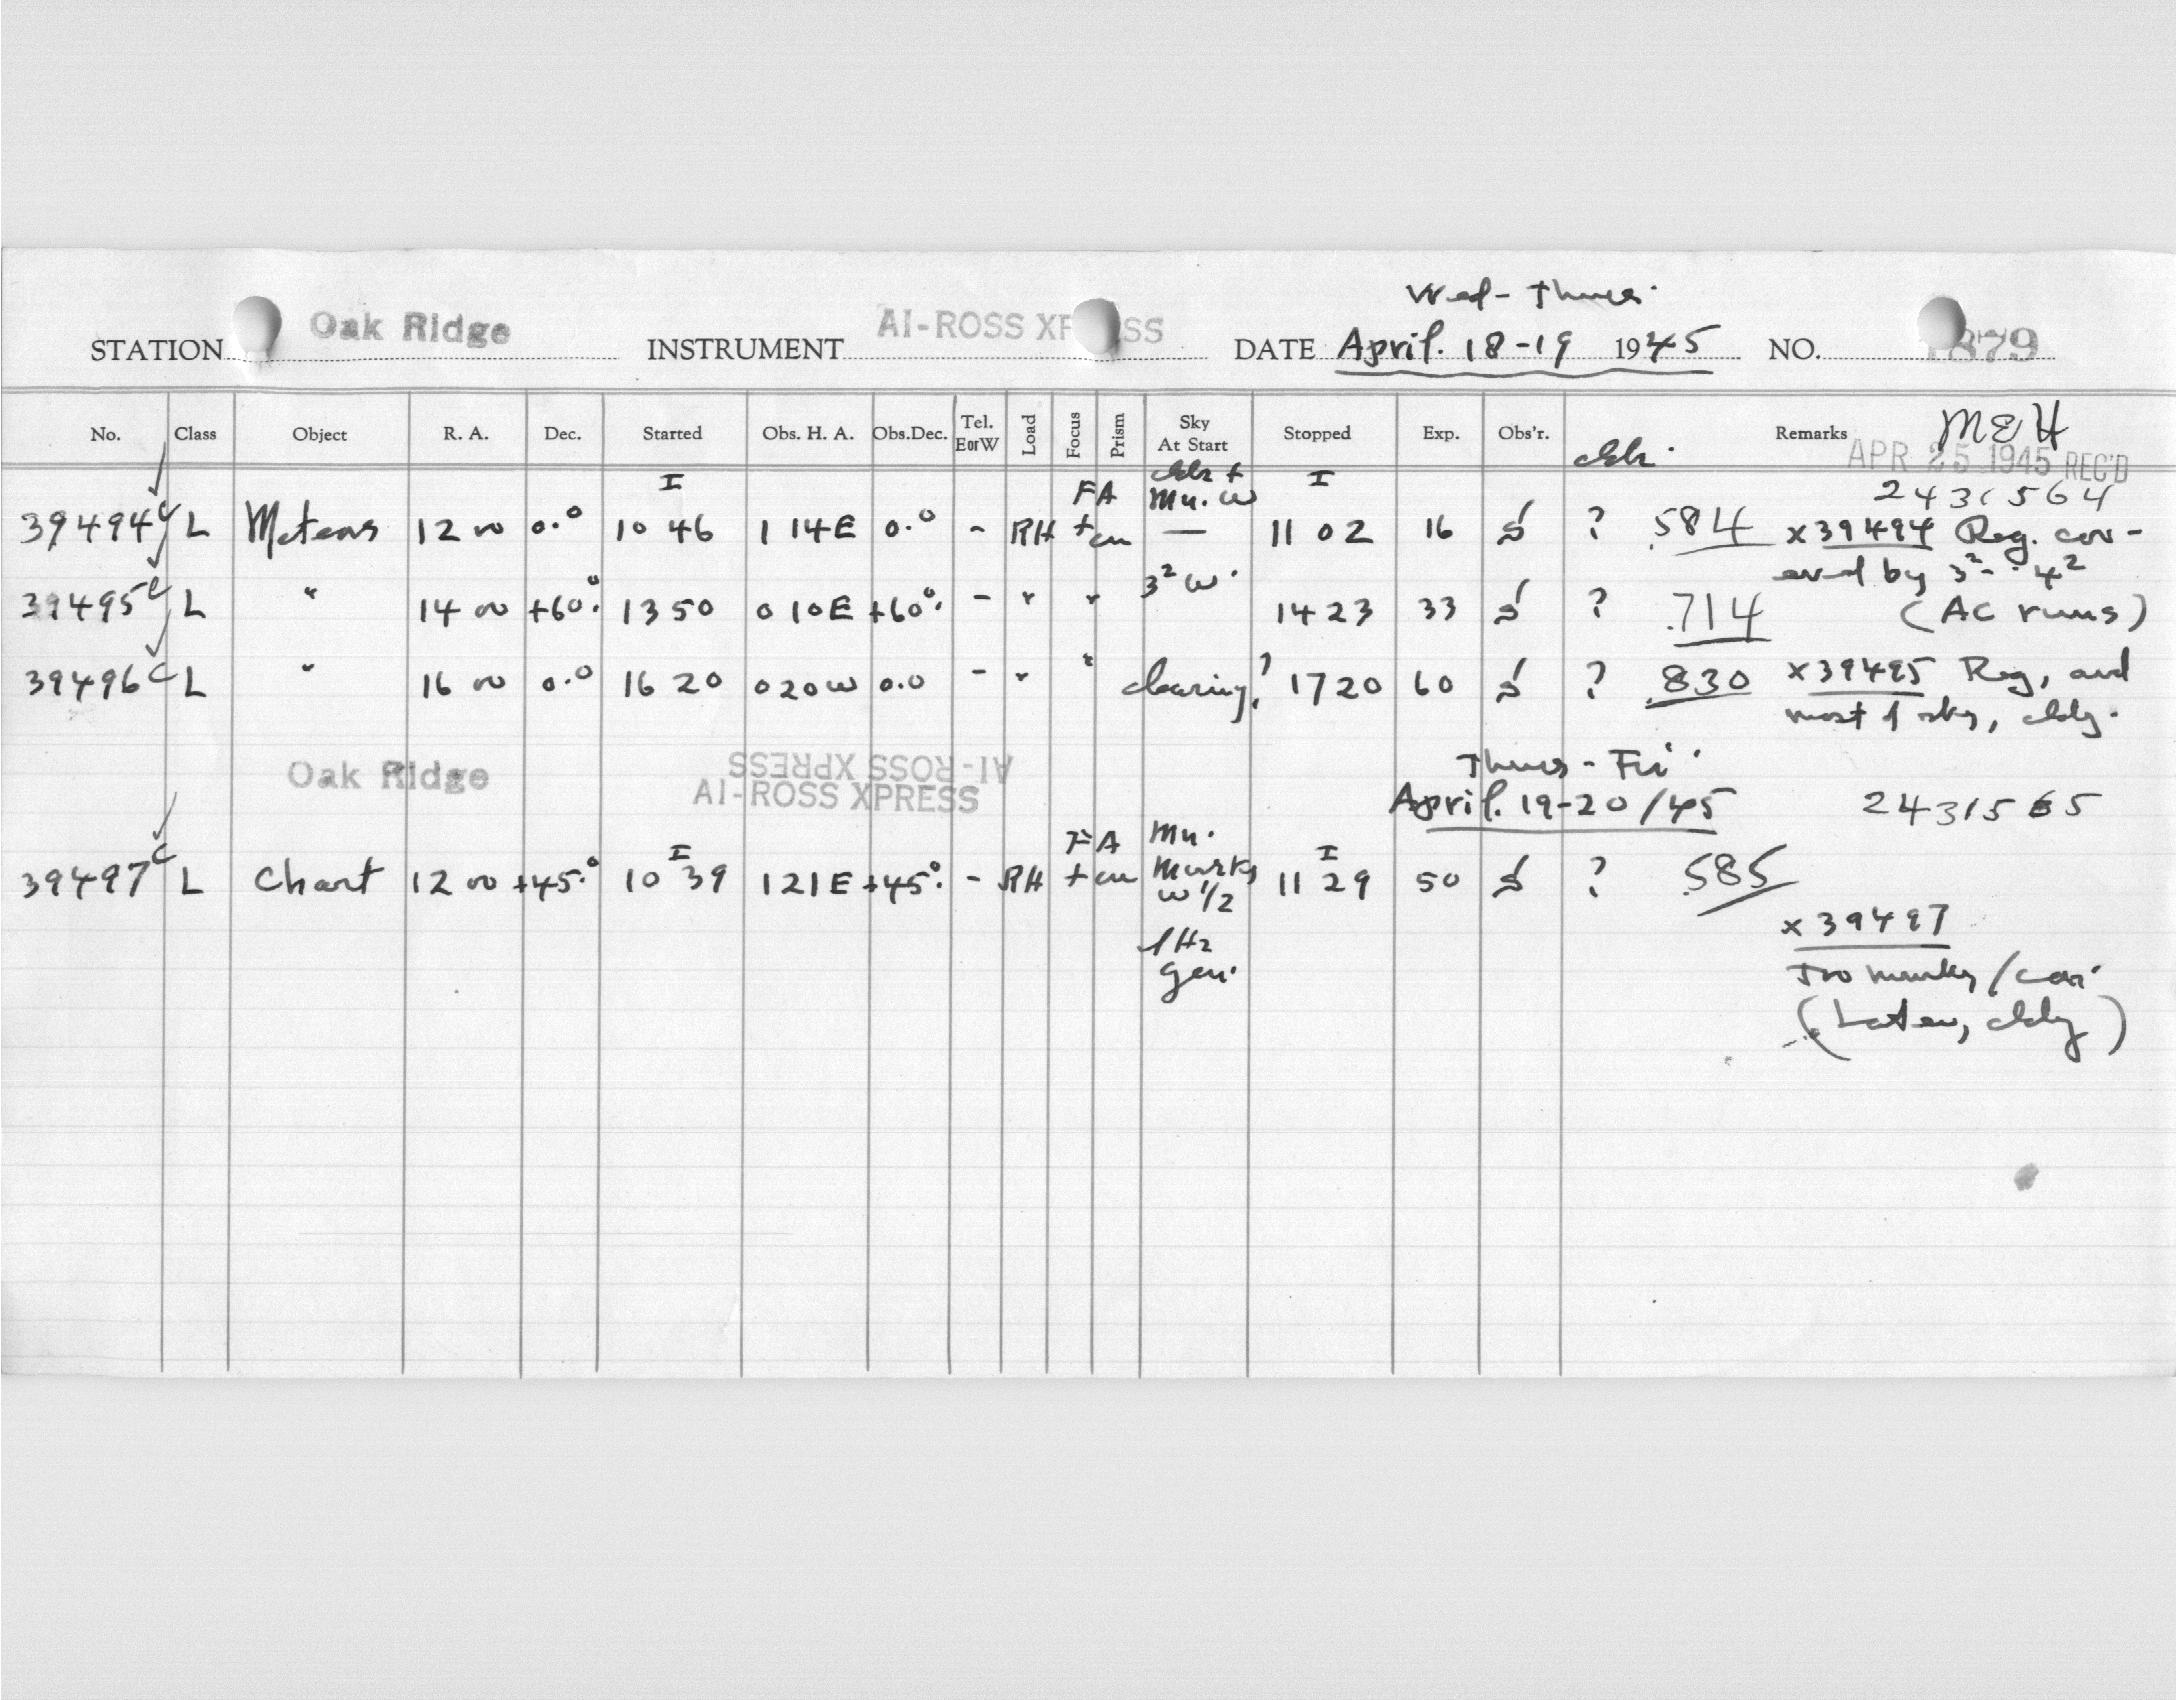 Wed - Thurs.
STATION Oak Ridge INSTRUMENT AI-ROSS XPRESS DATE April. 18-19 1945 NO. 1879
No. Class Object R. A. Dec. Started Obs. H. A. Obs.Dec. Tel. EorW Load Focus Prism Sky At Start Stopped Exp. Obs'r. Remarks MEH
APR 25 1945 REC'D
I I 2431564
FA Mn. W
39494 c L Meteors 12 00 0.° 10 46 1 14E 0.° - RH + cu — 11 02 16 S ? .584 x39494 Reg. cov-
ered by 3² - 4²
39495 c L " 14 00 +60°. 13 50 0 10E +60°. - " " 3² W. 14 23 33 S ? .714 (AC runs)
39496 c L " 16 00 0.0 16 20 0 20W 0.0 - " " clearing? 17 20 60 S ? .830 x39495 Reg, and
most of sky, cldy.
Oak Ridge AI-ROSS XPRESS Thurs - Fri.
AI-ROSS XPRESS April. 19-20/45 2431565
FA Mn.
I I
39497 c L Chart 12 00 +45.° 10 39 1 21E +45°. - RH + cu Murky W 1/2 11 29 50 S ? .585
x39497
Hz
gen.
Too murky /
(Later, cldy)